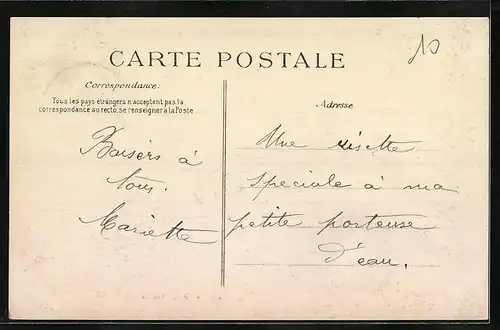 10
CARTE POSTALE
Correspondance:
Tous les pays étrangers n'acceptent pas la
correspondance au recto, se renseigner à la Poste
Adresse
Baisers à
tous.
Mariette
Une risette
speciale à ma
petite porteuse
d'eau.